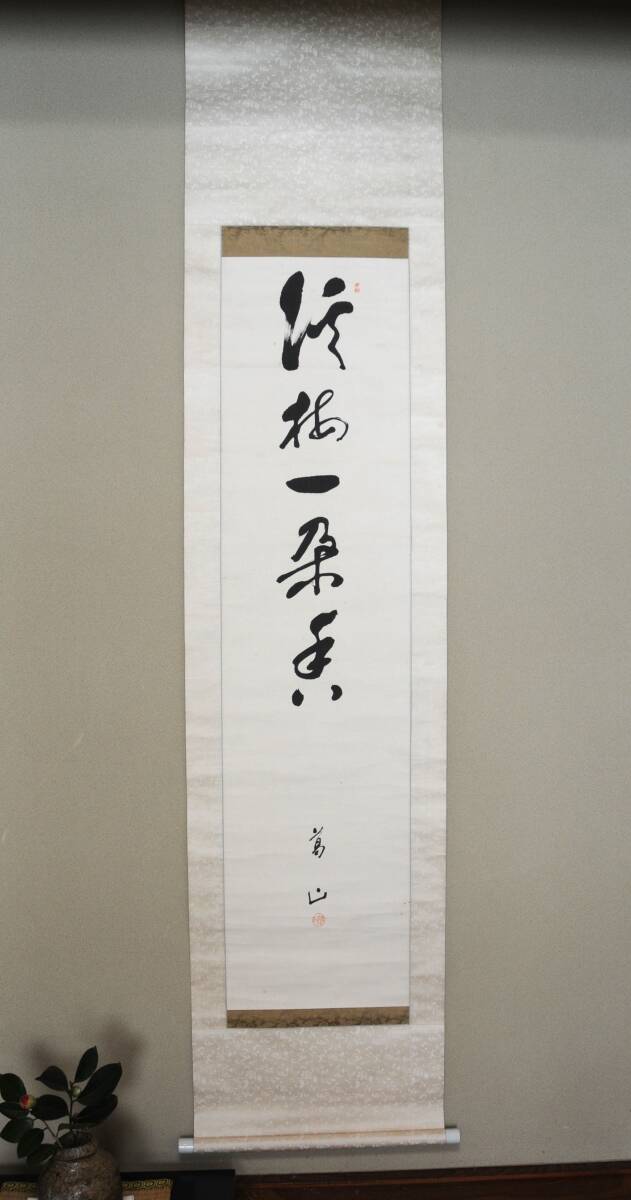 渓梅一朶香
葛山